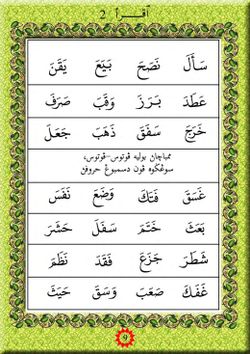 اقرأ 2
سَأَلَ نَصَحَ بَيَعَ يَقَنَ
عَطَدَ بَرَزَ وَقَبَ صَرَفَ
خَرَجَ سَفَقَ ذَهَبَ جَعَلَ
ممباچان بوليه ڤوتوس-ڤوتوس،
سوڠݢوه ڤون دسمبوڠ حروفڽ
غَسَقَ فَتَكَ وَضَعَ نَفَسَ
بَعَثَ خَتَمَ سَفَلَ حَشَرَ
شَطَرَ جَزَعَ فَقَدَ نَظَمَ
غَفَكَ صَعَبَ وَسَقَ حَيَثَ
9